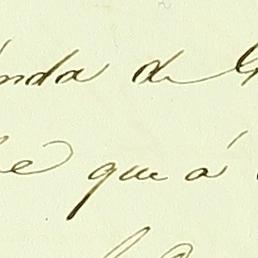 nda de
e que á